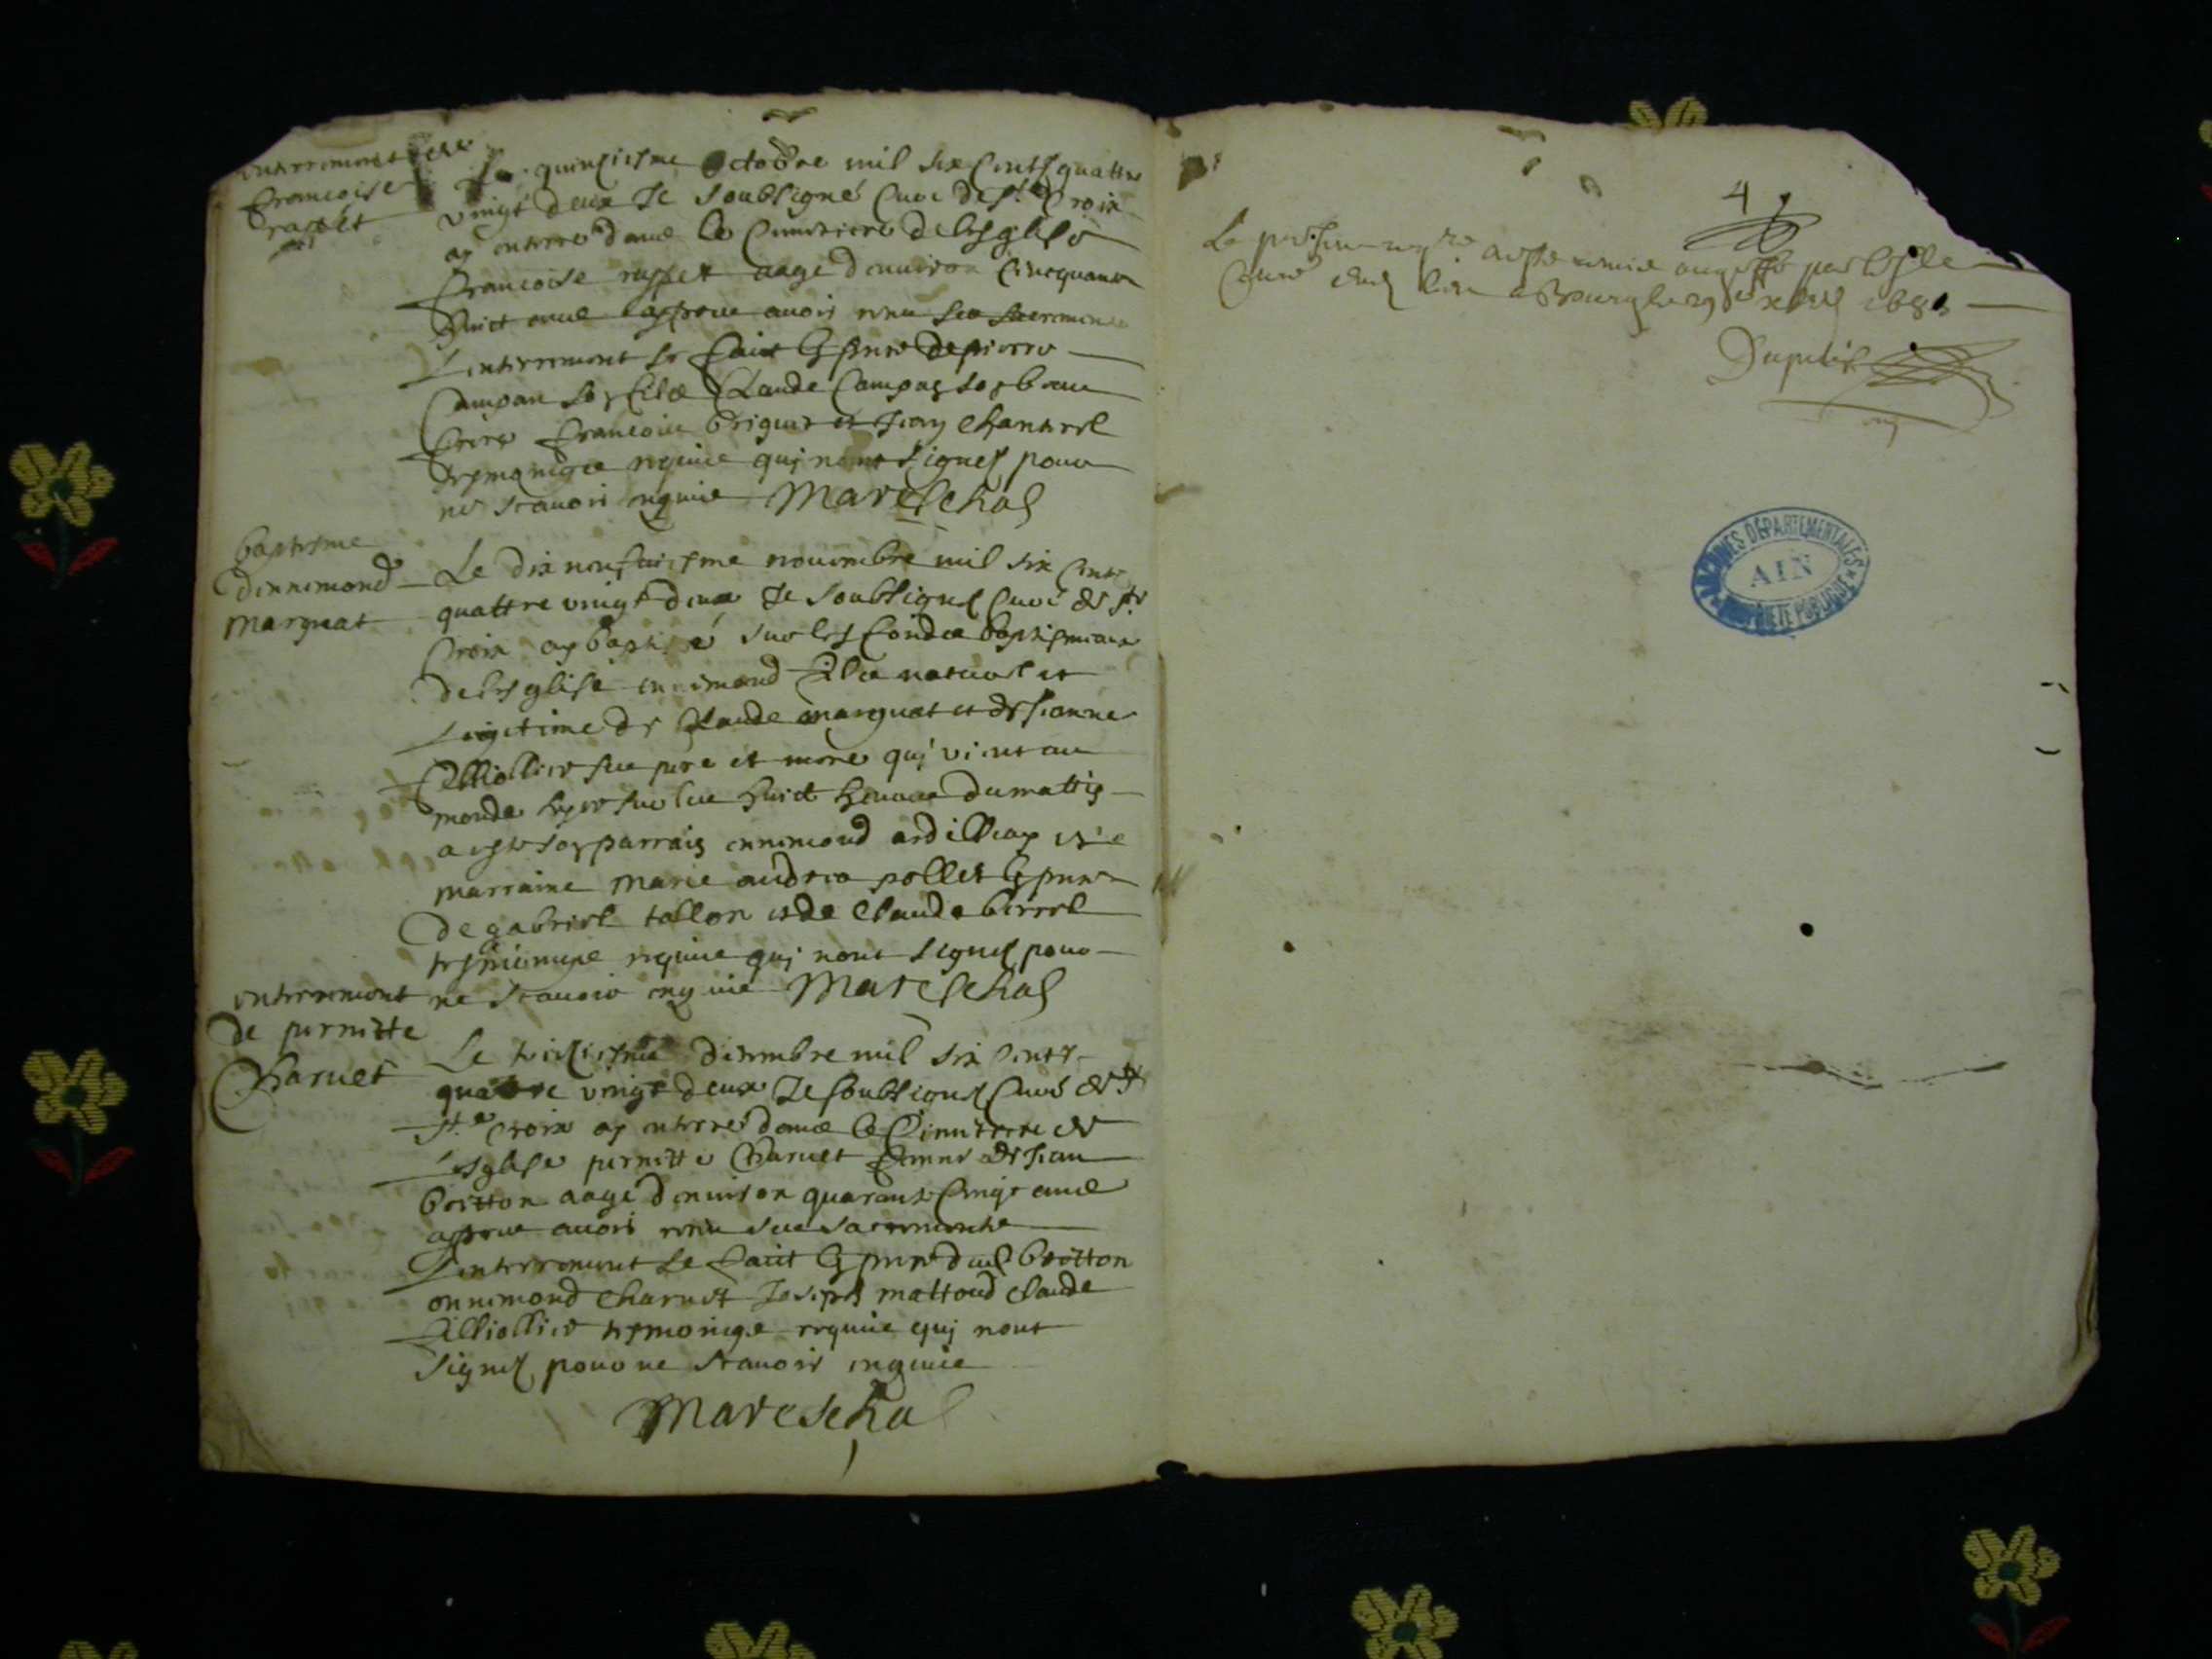 enterrement de
francoise
rasset
Le quinziesme octobre mil six cents quattre
vingt deux Je soubsigné curé de Ste Croix
ay enterré dans le cimetiere de lesglise
francoise rasset aage denuiron cincquante
huict ans apres auoir receu ses sacrements
lenterrement se faict Es pnce de pierre
Campan son filz Claude Campan son beau
frere francois et Jean Chanterel
tesmoings requis qui nont signes pour
ne scauoir enquis Mareschal
baptesme
dennemond
marguat
Le dix neufuiesme nouembre mil six cents
quattre vingt deux Je soubsigné curé de Ste
Croix ay baptisé sur les fondz baptismaux
de lesglise ennemond filz naturel et
legitime de Claude marguat et de Jeanne
filliollier ses pere et mere qui vient au
monde hyer sur les huict heures du mattin
a esté son parrain ennemond ardilliay et sa
marraine marie pollet Es pnce
de gabriel tallon et de Claude borrel
tesmoings requis qui nont signes pour
ne scauoir enquis Mareschal
enterrement
de pernette
Charuet
Le decembre mil six cents
quattre vingt deux Je soubsigné curé de
Ste Croix ay enterré dans le Cimetiere de
lesglise pernette Charuet femme de Jean
botton aage denuiron quarante cinq ans
apres auoir receu ses sacrements
lenterrement se faict Es pnce dud botton
ennemond charuet Joseph mattoud Claude
filliollier tesmoings requis qui nont
signes pour ne scauoir enquis
Mareschal
4
Le present regre a esté remis au greffe par le sr
Curé dud lieu a Bourg le 29e xbre 168
Dupuis
ARCHIVES DÉPARTEMENTALES
AIN
PROPRIÉTÉ PUBLIQUE